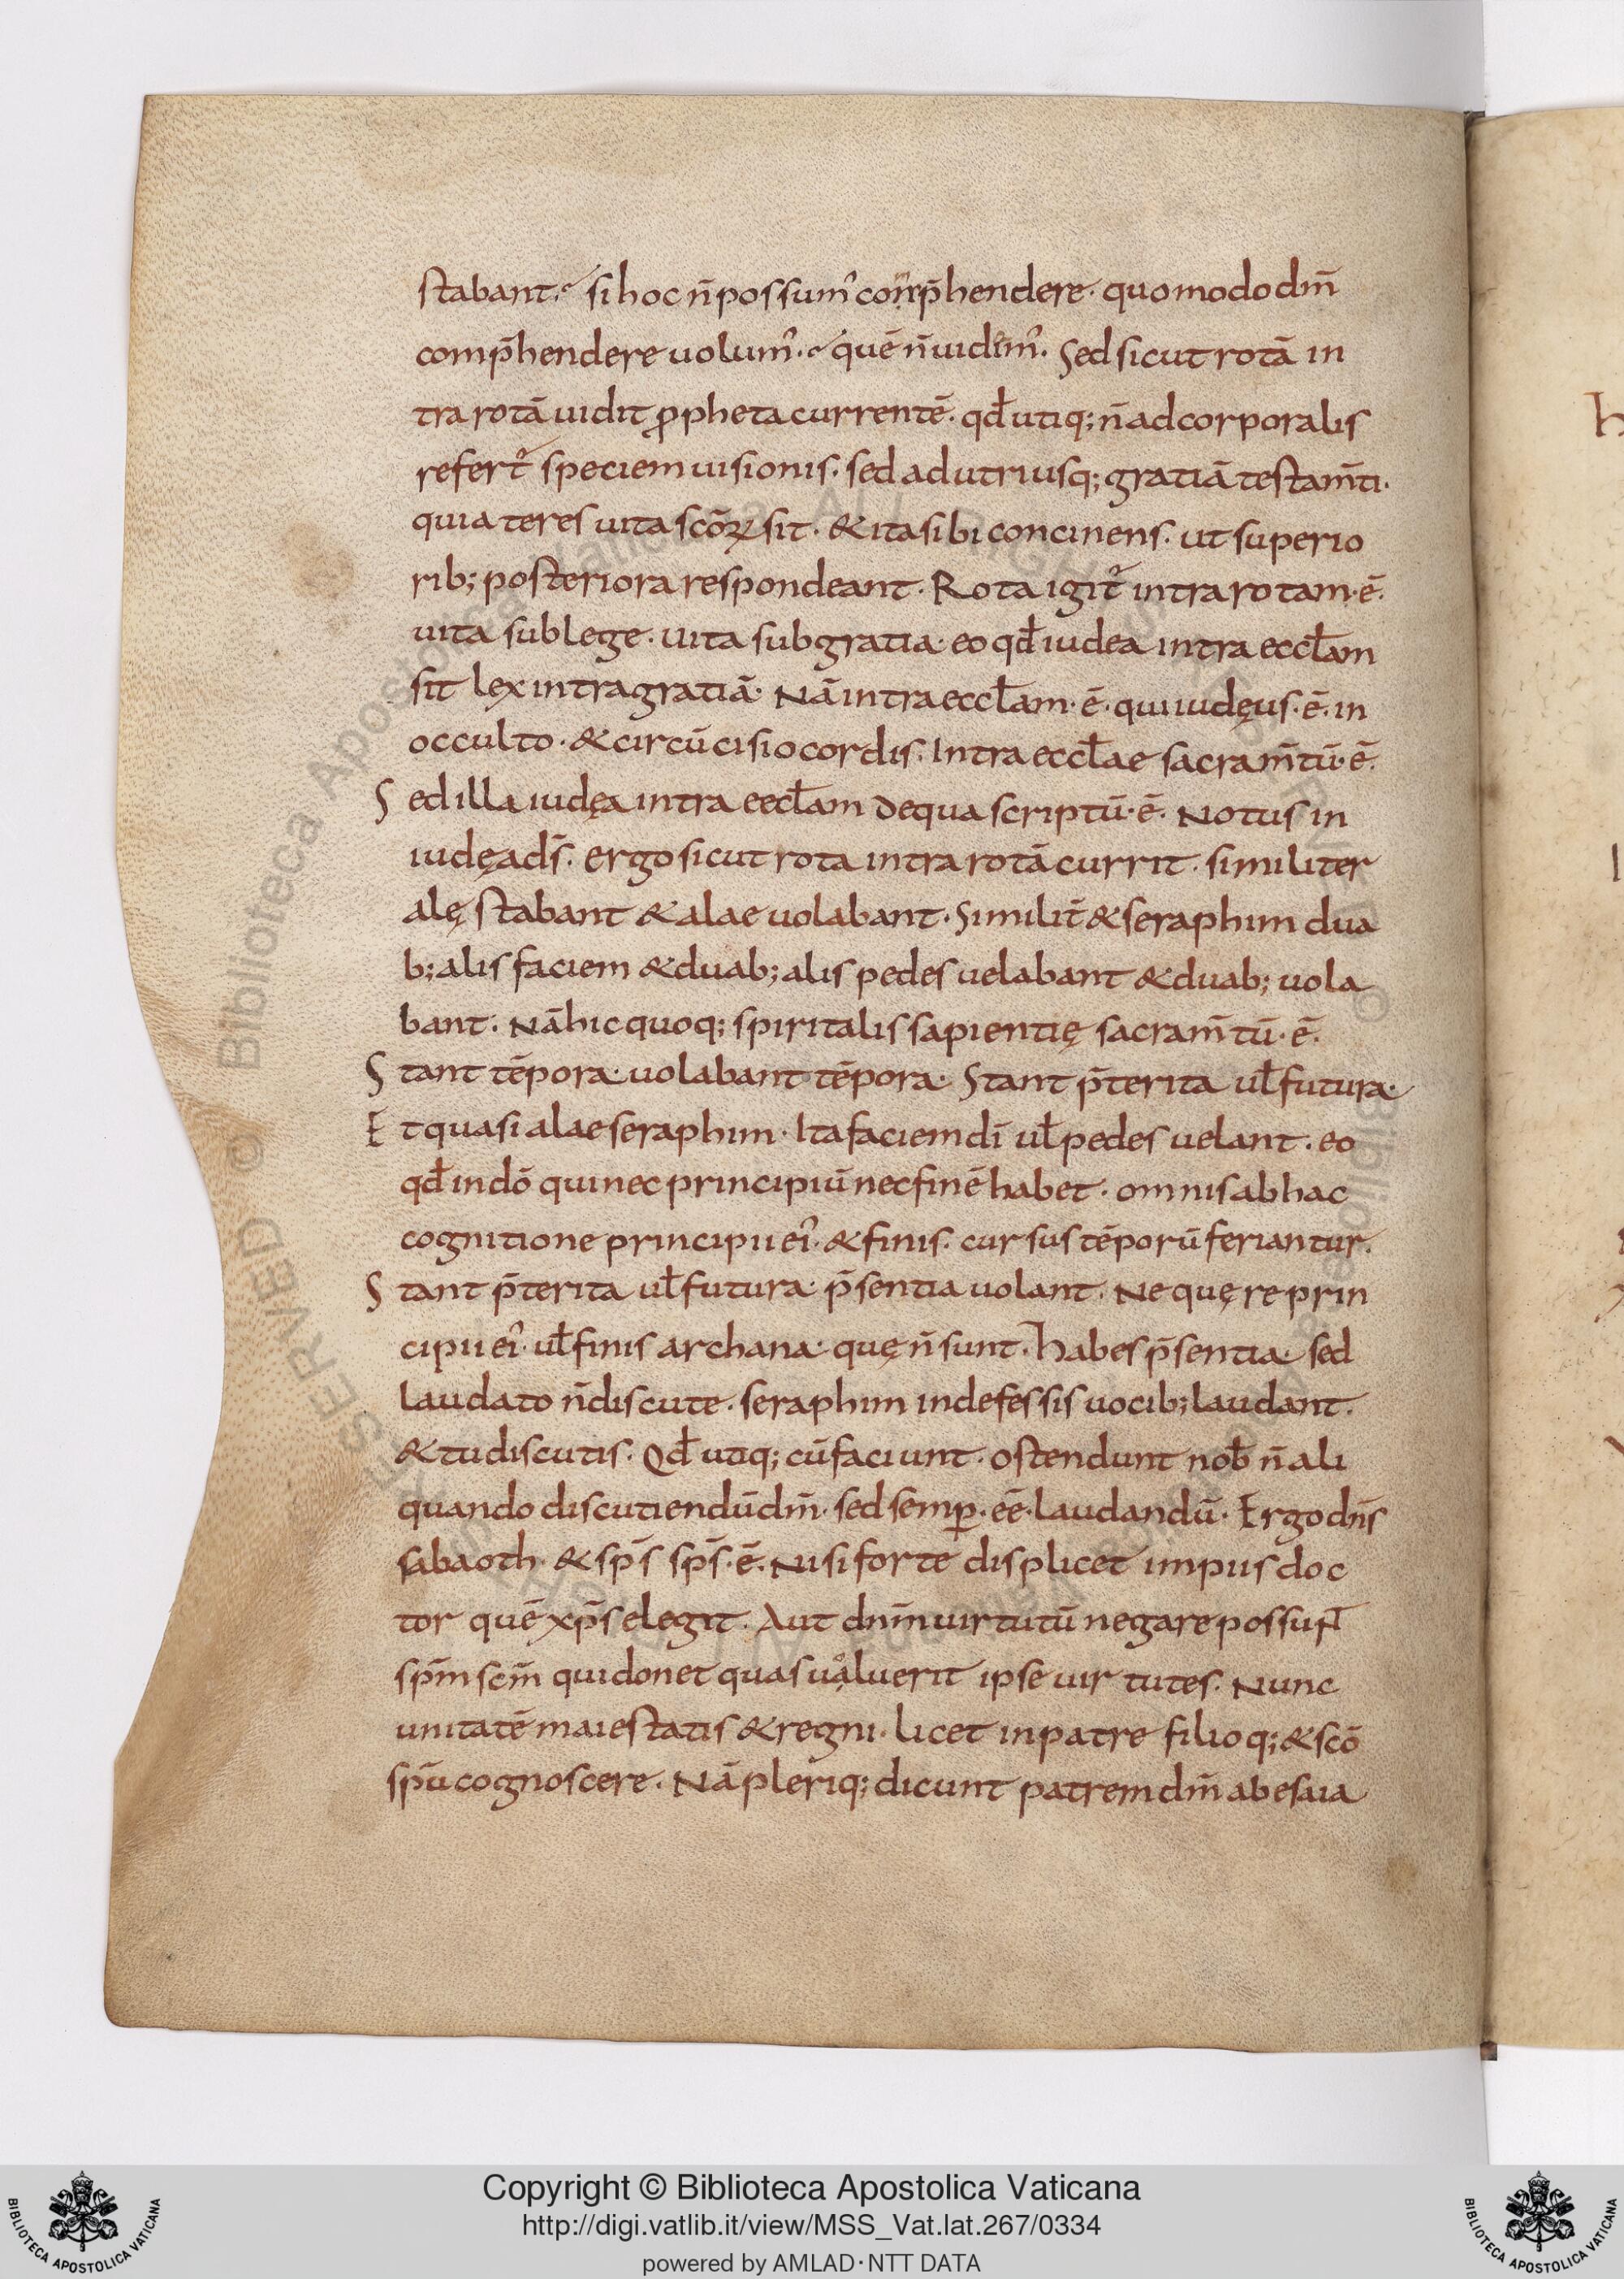 stabant· si hoc n̄ possumꝰ comp̄hendere· quomodo dm̄
comp̄hendere uolumꝰ· quē n̄ uidimꝰ. Sed sicut rotā in
tra rotā uidit ꝓpheta currentē· qd̄ utiq; n̄ ad corporalis
refert᷒ speciem uisionis· sed ad utriusq; gratiā testam̄ti·
quia teres uita scōꝝ sit· & ita sibi concinens· ut superio
rib; posteriora respondeant· Rota igit᷒ intra rotam·ē·
uita sub lege· uita sub gratia· eo qd̄ iudea intra eccl̄am
sit lex intra gratiā· Nā intra eccl̄am·ē· qui iudęus·ē·in
occulto· & circūcisio cordis· Intra eccl̄ae sacram̄tū·ē·
Sed illa iudęa intra eecl̄am de qua scriptū·ē· Notus in
iudęa ds̄· ergo sicut rota intra rotā currit· similiter
alę stabant & alae uolabant· Similit̄ & seraphim dua
b; alis faciem & duab; alis pedes uelabant & duab; uola
bant· Nā hic quoq; spiritalis sapientię sacram̄tū·ē·
Stant tēpora· uolabant tēpora· Stant p̄terita ul̄ futura·
Et quasi alae seraphim· Ita faciem dī ul̄ pedes uelant· eo
qd̄ in dō qui nec principiū nec finē habet· omnis ab hac
cognitione principii eiꝰ· & finis· cursus tēporū feriantur·
Stant p̄terita ul̄ futura· p̄sentia uolant· Ne quęre prin
cipii eiꝰ· ul̄ finis archana· quę n̄ sunt· habes p̄sentia· sed
laudato n̄ discute· seraphim indefessis uocib; laudant·
& tu discutis· Qd̄ utiq; cū faciunt· ostendunt nob̄ n̄ ali
quando discutiendū dm̄· sed semꝑ·eē·laudandū· Ergo dn̄s
sabaoth· & sp̄s sp̄s·ē· Nisi forte displicet impiis doc
tor quē xp̄s elegit· Aut dnm̄ uirtutū negare possunt
sp̄m scm̄ qui donet quas uoluerit ipse uirtutes· Nunc
unitatē maiestatis & regni· licet in patre filioq; & scō
sp̄u cognoscere· Nā pleriq; dicunt patrem dm̄ ab esaia
Copyright © Biblioteca Apostolica Vaticana
http://digi.vatlib.it/view/MSS_Vat.lat.267/0334
powered by AMLAD·NTT DATA
BIBLIOTECA APOSTOLICA VATICANA
BIBLIOTECA APOSTOLICA VATICANA